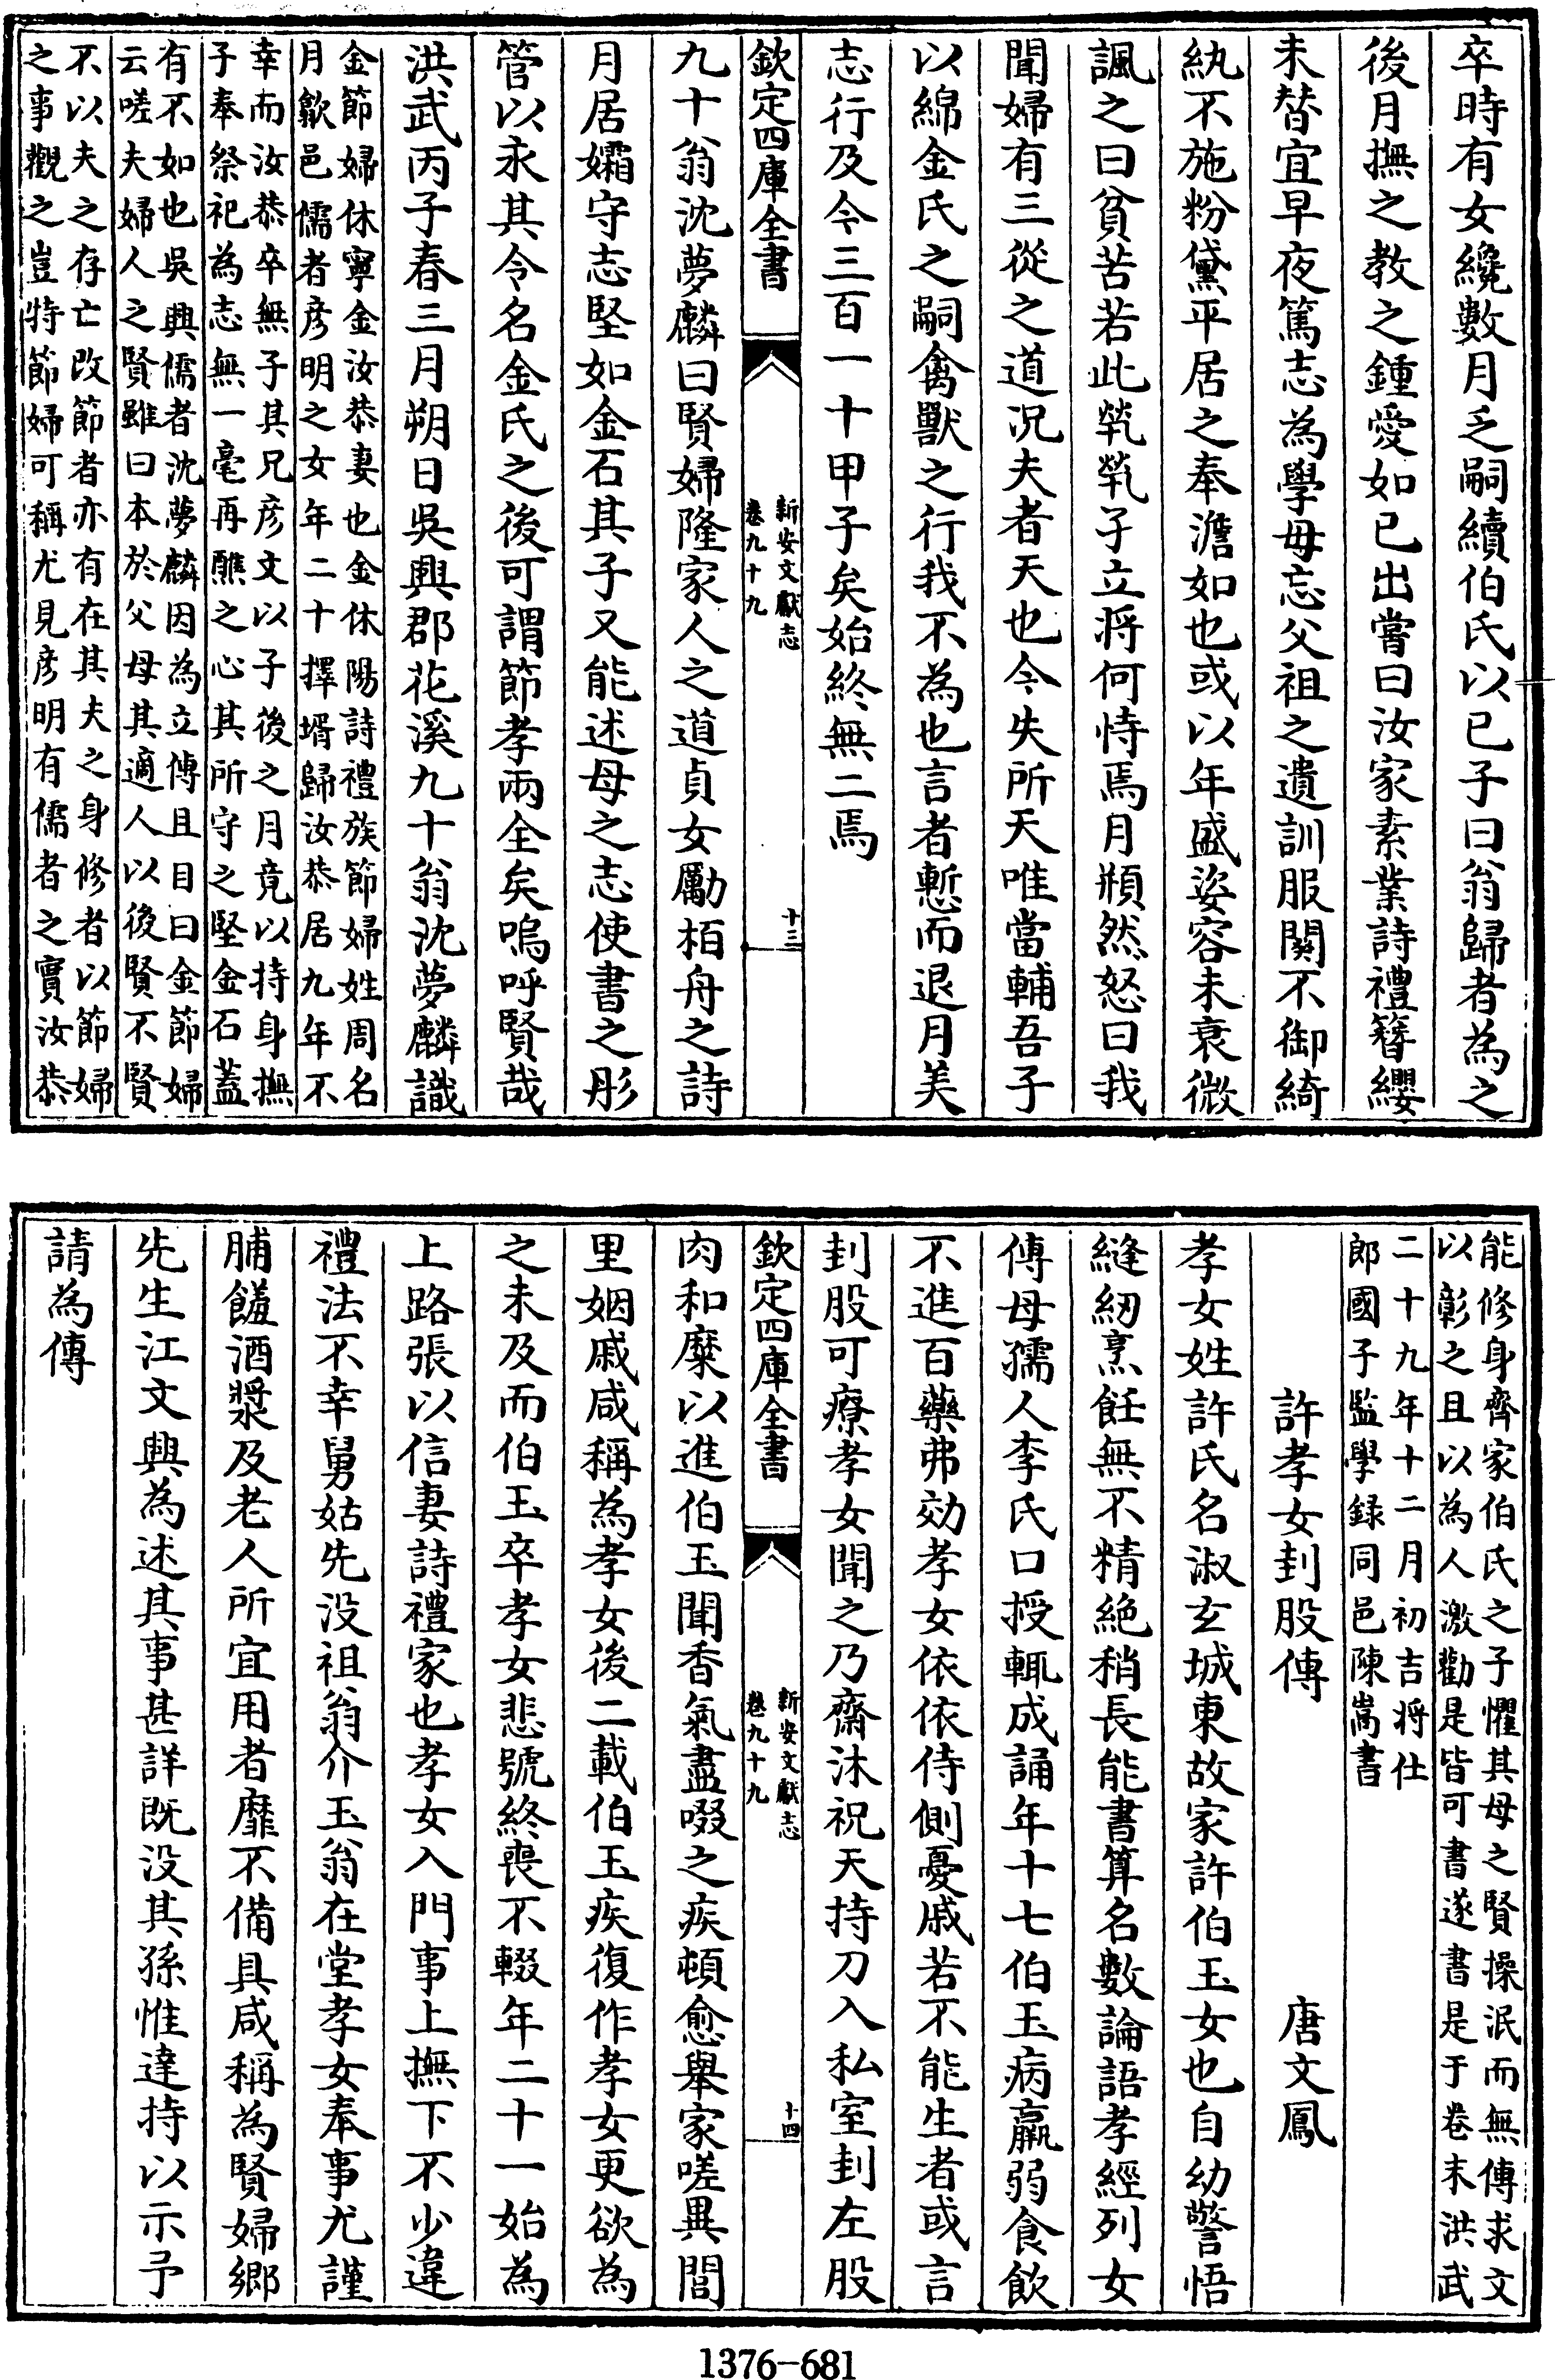 卒時有女纔數月乏嗣續伯氏以已子曰翁歸者為之
後月撫之教之鍾愛如已出嘗曰汝家素業詩禮簪纓
未替宜早夜篤志為學毋忘父祖之遺訓服闋不御綺
紈不施粉黛平居之奉澹如也或以年盛姿容未衰微
諷之曰貧苦若此煢煢孑立將何恃焉月頩然怒曰我
聞婦有三從之道况夫者天也今失所天唯當輔吾子
以綿金氏之嗣禽獸之行我不為也言者慙而退月美
志行及今三百一十甲子矣始終無二焉
欽定四庫全書
新安文獻志
卷九十九
十三
九十翁沈夢麟曰賢婦隆家人之道貞女勵栢舟之詩
月居孀守志堅如金石其子又能述母之志使書之彤
管以永其令名金氏之後可謂節孝兩全矣嗚呼賢哉
洪武丙子春三月朔日吳興郡花溪九十翁沈夢麟識
金節婦休寧金汝恭妻也金休陽詩禮族節婦姓周名
月歙邑儒者彦明之女年二十擇壻歸汝恭居九年不
幸而汝恭卒無子其兄彦文以子後之月竟以持身撫
子奉祭祀為志無一毫再醮之心其所守之堅金石蓋
有不如也吳興儒者沈夢麟因為立傳且目曰金節婦
云嗟夫婦人之賢雖曰本於父母其適人以後賢不賢
不以夫之存亡改節者亦有在其夫之身修者以節婦
之事觀之豈特節婦可稱尤見彦明有儒者之實汝恭
能修身齊家伯氏之子懼其母之賢操泯而無傳求文
以彰之且以為人激勸是皆可書遂書是于卷末洪武
二十九年十二月初吉將仕
郎國子監學録同邑陳嵩書
許孝女刲股傳
唐文鳳
孝女姓許氏名淑玄城東故家許伯玉女也自幼警悟
縫紉烹飪無不精絶稍長能書算名數論語孝經列女
傳母孺人李氏口授輒成誦年十七伯玉病羸弱食飲
不進百藥弗効孝女依依侍側憂戚若不能生者或言
刲股可療孝女聞之乃齋沐祝天持刀入私室刲左股
欽定四庫全書
新安文獻志
卷九十九
十四
肉和糜以進伯玉聞香氣盡啜之疾頓愈舉家嗟異閭
里姻戚咸稱為孝女後二載伯玉疾復作孝女更欲為
之未及而伯玉卒孝女悲號終喪不輟年二十一始為
上路張以信妻詩禮家也孝女入門事上撫下不少違
禮法不幸舅姑先没祖翁介玉翁在堂孝女奉事尤謹
脯饈酒漿及老人所宜用者靡不備具咸稱為賢婦鄉
先生江文興為述其事甚詳既没其孫惟達持以示予
請為傳
1376-681